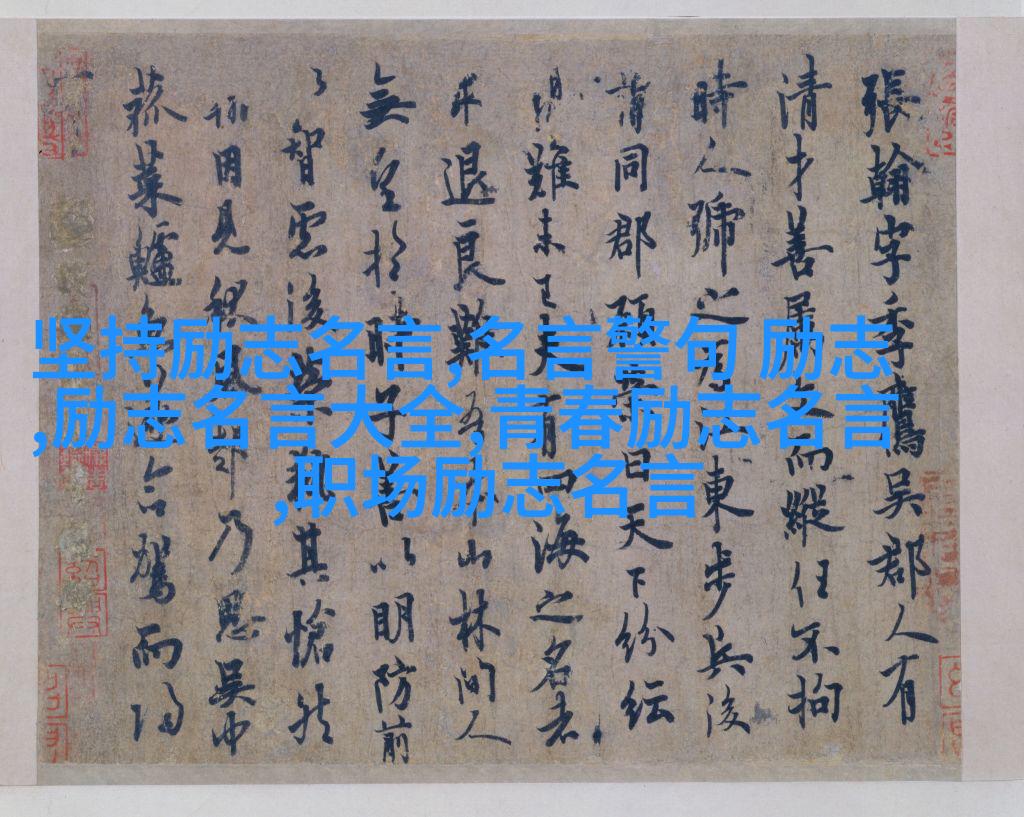 坚持励志名言,名言警句 励志
,励志名言大全,青春励志名言
,职场励志名言
張翰字季鷹吳郡人有
清才善屬文而縱任不拘
時人號之為江東步兵後
同郡顧榮曰天下紛紜
難未已夫有四海之名者
求退良難吾本山林間人
無望於時子善以明防前
以智慮後榮執其愴然
翰因見秋風起乃思吳中
菰菜鱸魚遂命駕而歸